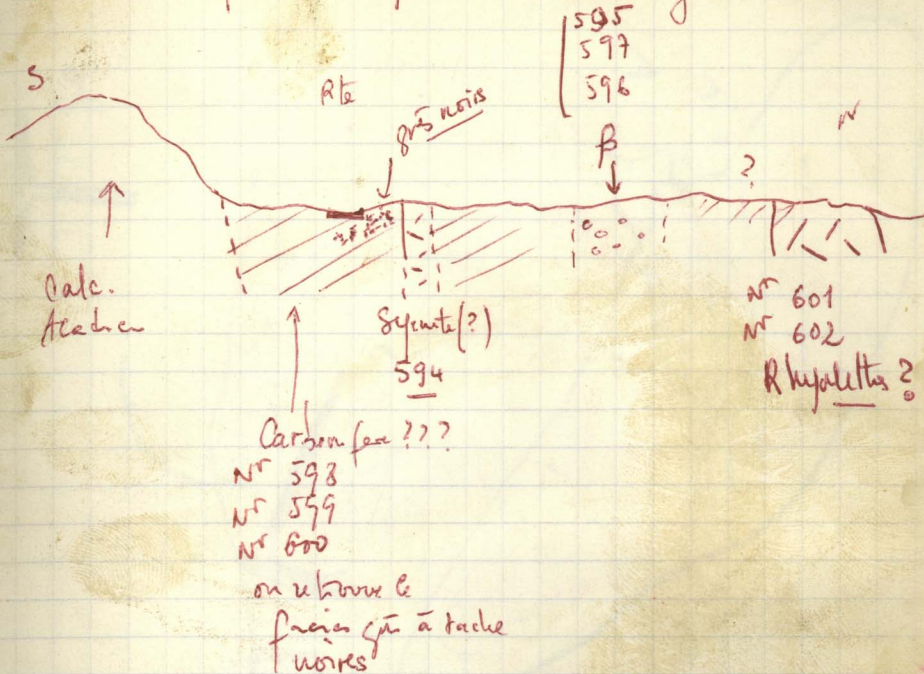 595
597
596
S
Rte
grès noirs
N
β
?
Calc.
Acadien
Syenite (?)
594
Nr 601
Nr 602
Rhyolithes ?
Carbonifère ???
Nr 598
Nr 599
Nr 600
on retrouve le
grès à tache
noires